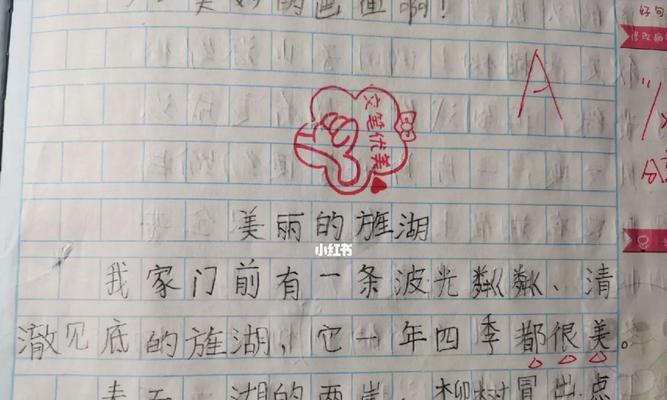 美妙的画啊！
好句
修改病
A
文笔优美
美丽的旌湖
小红书
我家门前有一条波光粼粼、清
澈见底的旌湖，它一年四季都很美。
湖的两岸，柳树冒出点